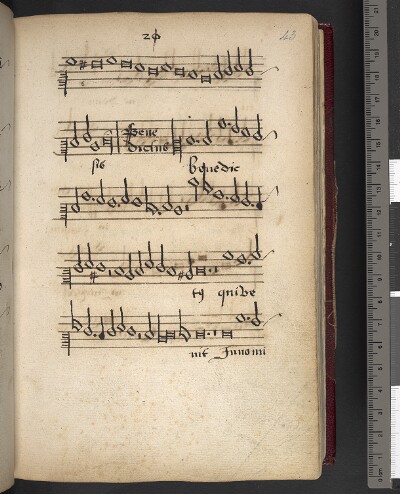 20
Bene
dictus
sis Benedic
tꝰ qui ve
nit Innomi